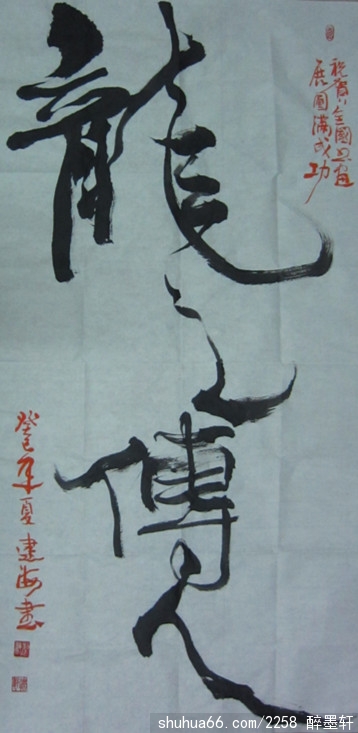 祝賀全國书画
展圓滿成功
龍之傳人
癸巳年夏建海書
shuhua66.com/2258 醉墨轩